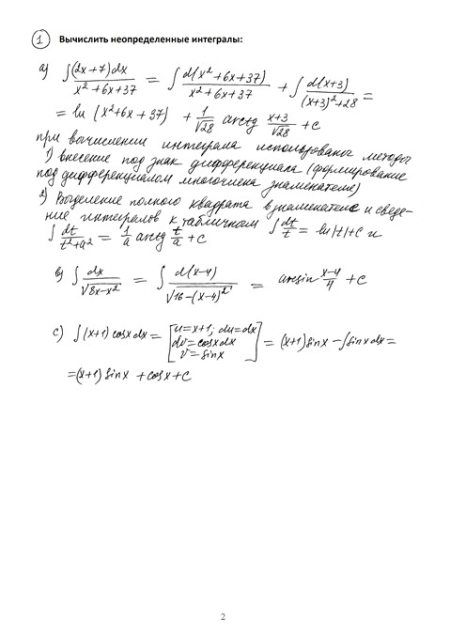 1 Вычислить неопределенные интегралы:
a) ∫(2x+7)dx / x²+6x+37 = ∫ d(x²+6x+37) / x²+6x+37 + ∫ d(x+3) / (x+3)²+28 =
= ln(x²+6x+37) + 1/√28 arctg x+3/√28 + C
при вычислении интеграла использованы методы
1) внесение под знак дифференциала (формирование
под дифференциалом многочлена знаменателя)
2) Выделение полного квадрата в знаменателе и сведе-
ние интегралов к табличном ∫ dt/t = ln|t|+C и
∫ dt / t²+a² = 1/a arctg t/a + C
в) ∫ dx / √8x-x² = ∫ d(x-4) / √16-(x-4)² = arcsin x-4/4 + C
c) ∫(x+1)cosxdx = [u=x+1; du=dx
dv=cosxdx
v=sinx] = (x+1)sinx - ∫sinxdx =
=(x+1)sinx + cosx+C
2